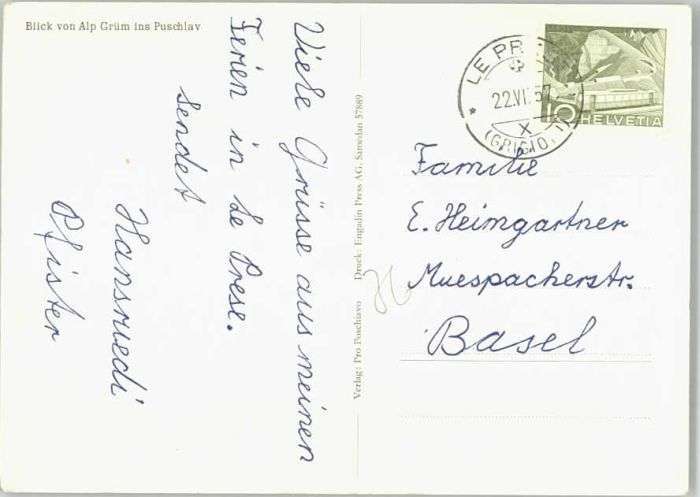 Blick von Alp Grüm ins Puschlav
Viele Grüsse aus meinen
Ferien in Le Prese.
sendet
Hansruedi
Pfister
Verlag: Pro Poschiavo Druck: Engadin Press AG, Samedan 57889
LE PR
22.VI. 57
X
(GRIGIONI)
10 HELVETIA
Familie
E. Heimgartner
Muespacherstr.
Basel